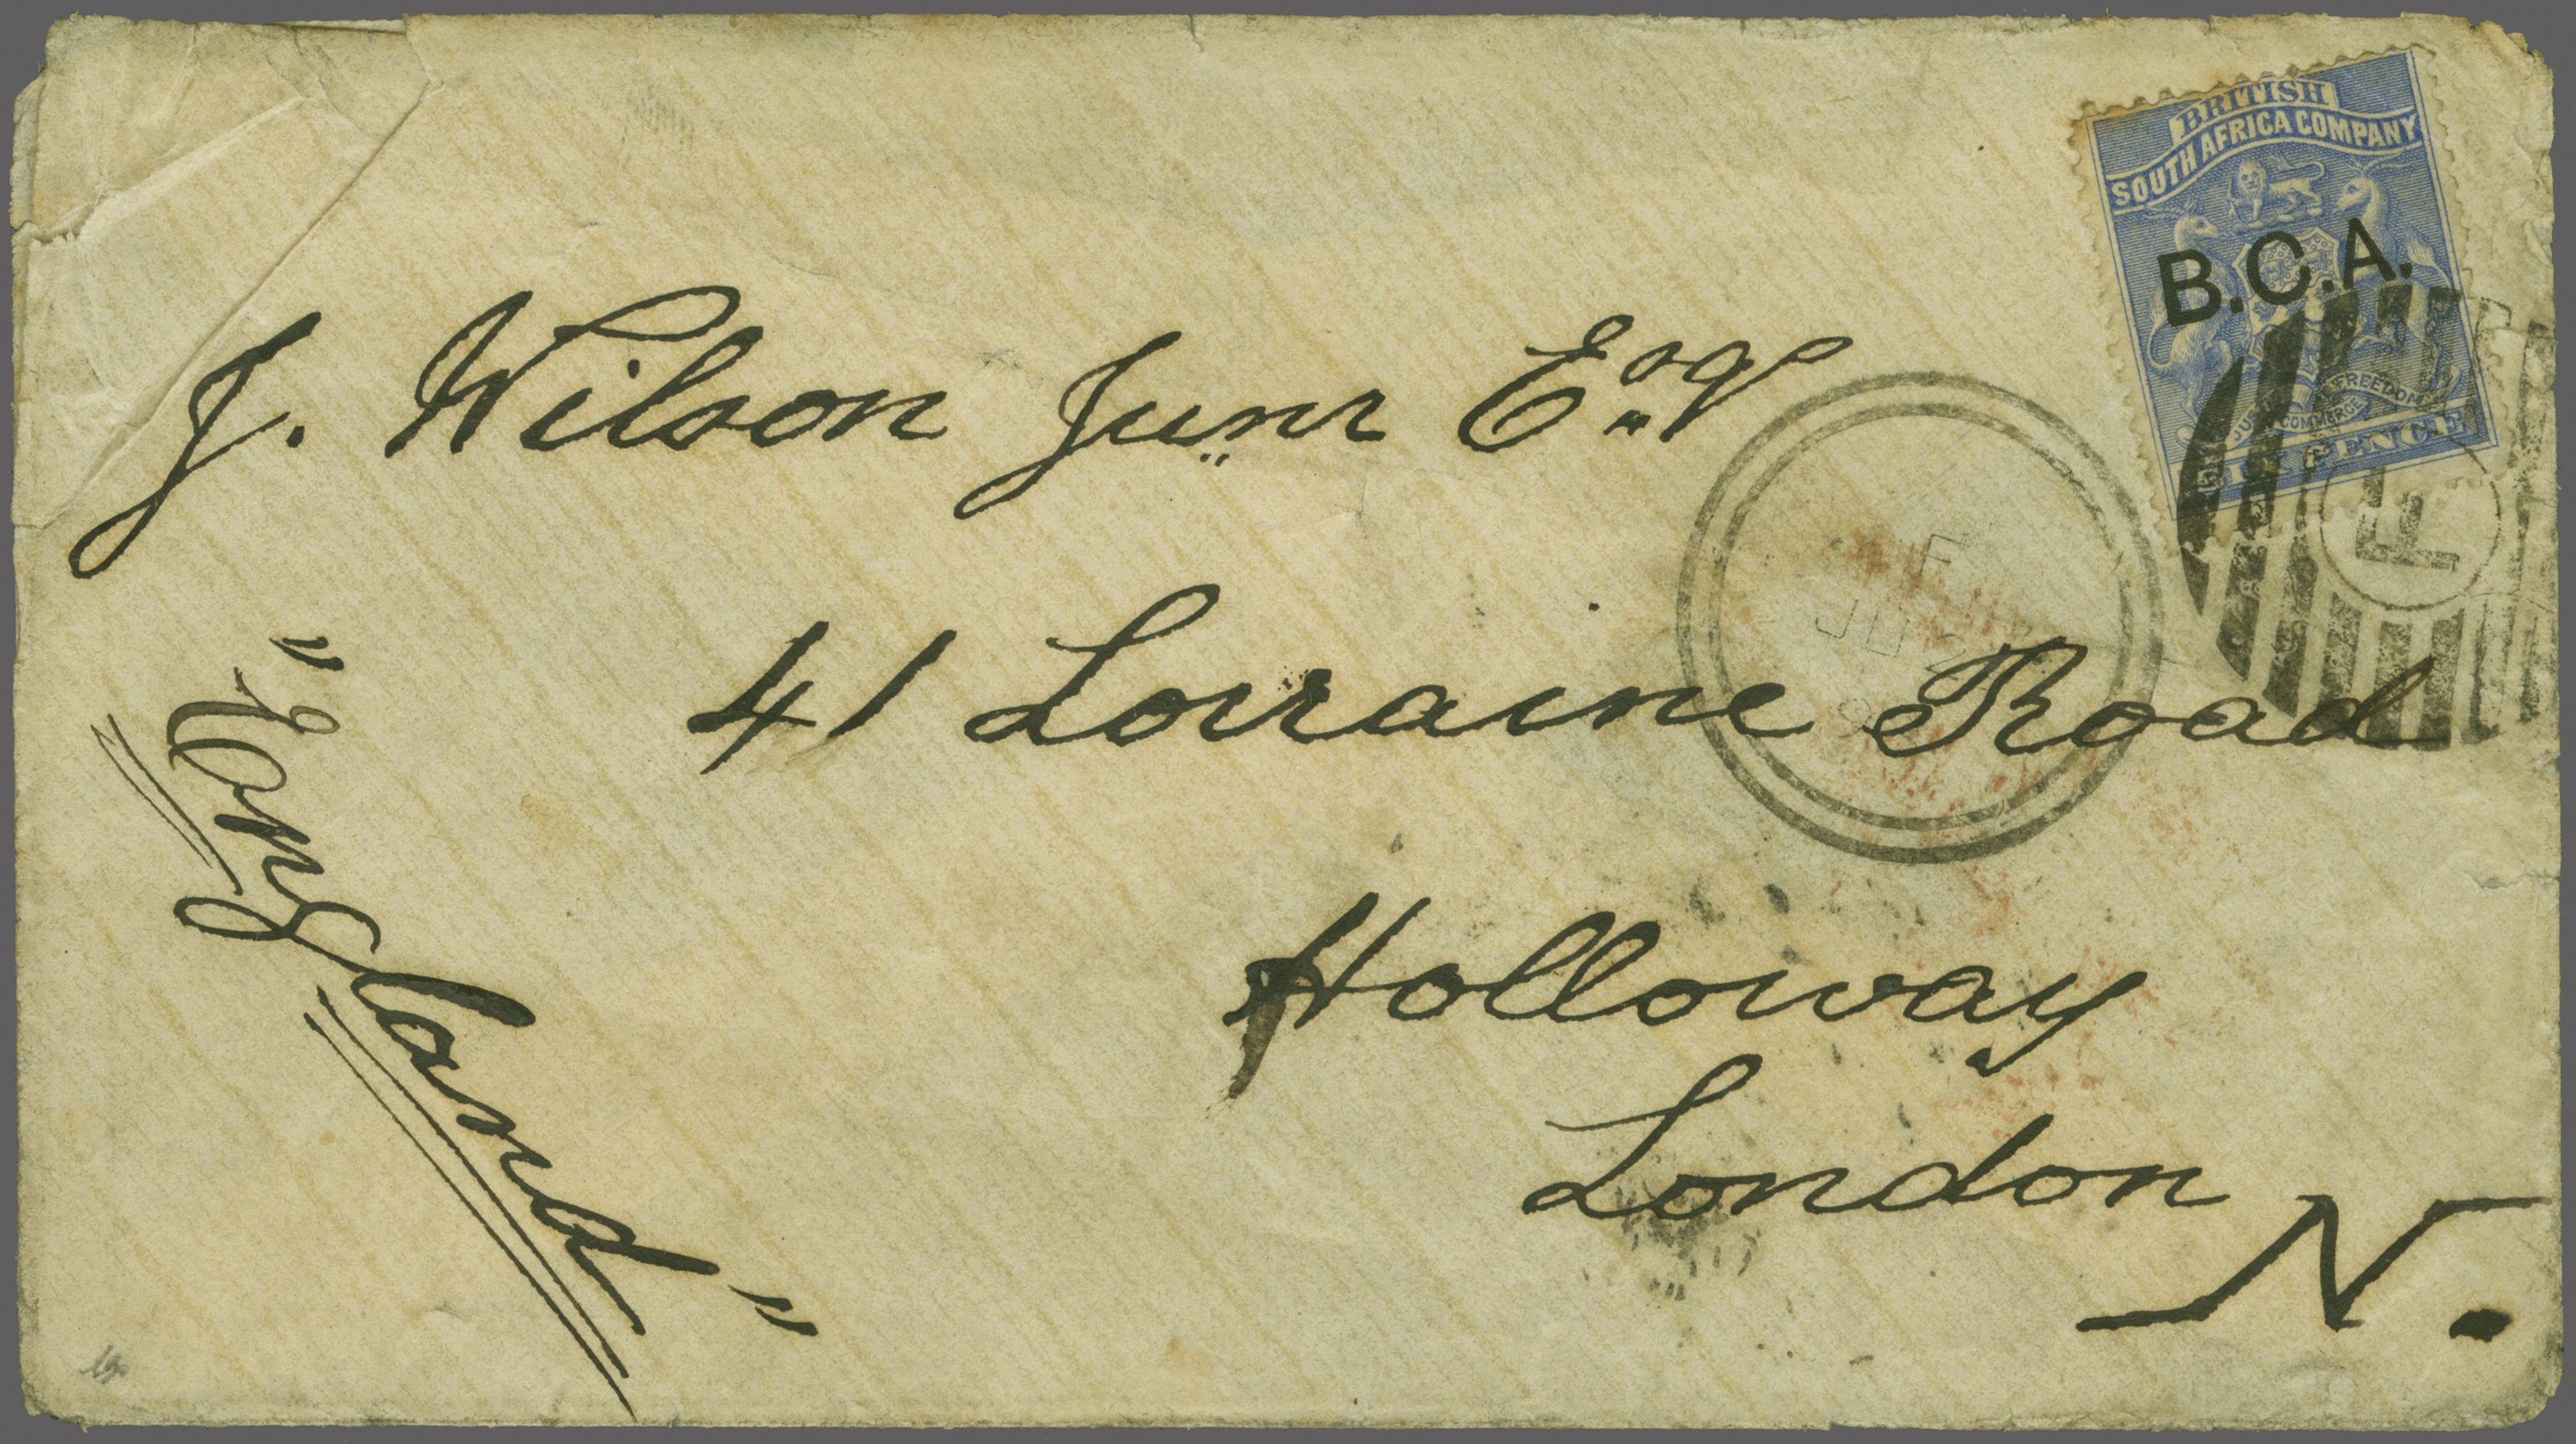 BRITISH
SOUTH AFRICA COMPANY
B.C.A.
FREEDOM
COMMERCE
PENCE
F
J. Wilson Junr Esqr
F
JU
41 Lorraine Road
Holloway
London
N.
"England"